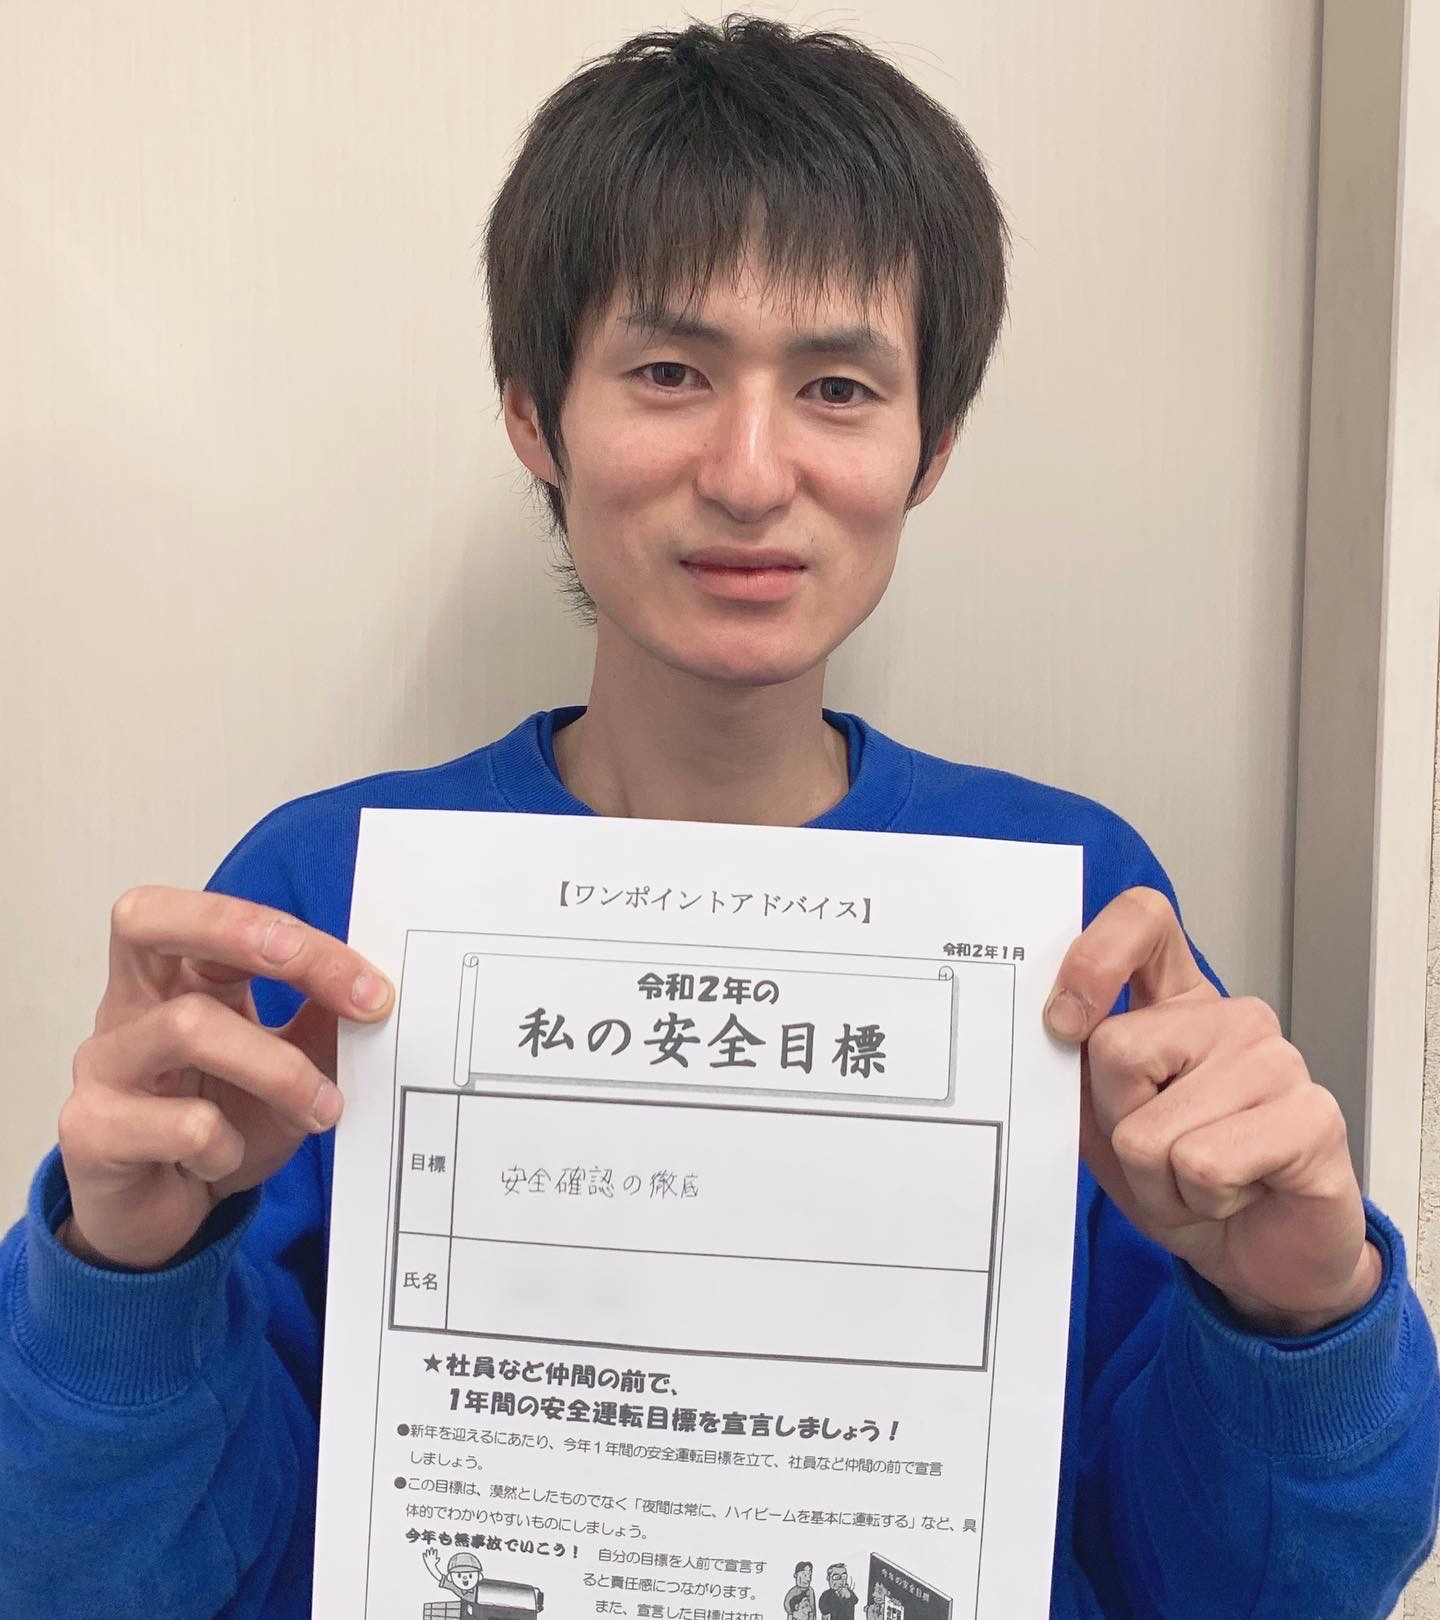 【ワンポイントアドバイス】
令和2年1月
令和2年の
私の安全目標
目標
安全確認の徹底
氏名
★社員など仲間の前で、
1年間の安全運転目標を宣言しましょう!
●新年を迎えるにあたり、今年1年間の安全運転目標を立て、社員など仲間の前で宣言
しましょう。
●この目標は、漠然としたものでなく「夜間は常に、ハイビームを基本に運転する」など、具
体的でわかりやすいものにしましょう。
今年も無事故でいこう!
自分の目標を人前で宣言す
ると責任感につながります。
また、宣言した目標は社内
今年の安全目標